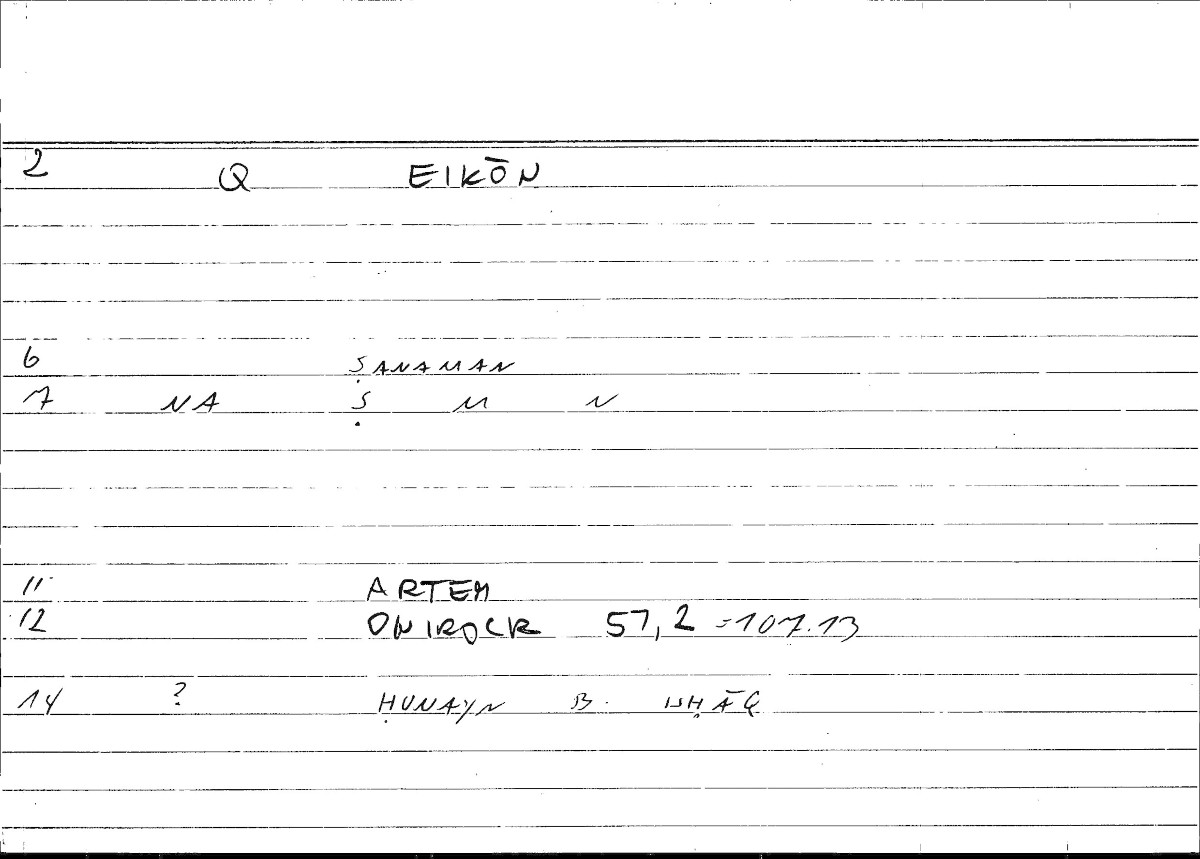 2 Q EIKŌN
6 ṢANAMAN
7 NA Ṣ M N
11 ARTEM
12 ONIROCR 57,2 = 107.13
14 ? ḤUNAYN B. ISḤĀQ